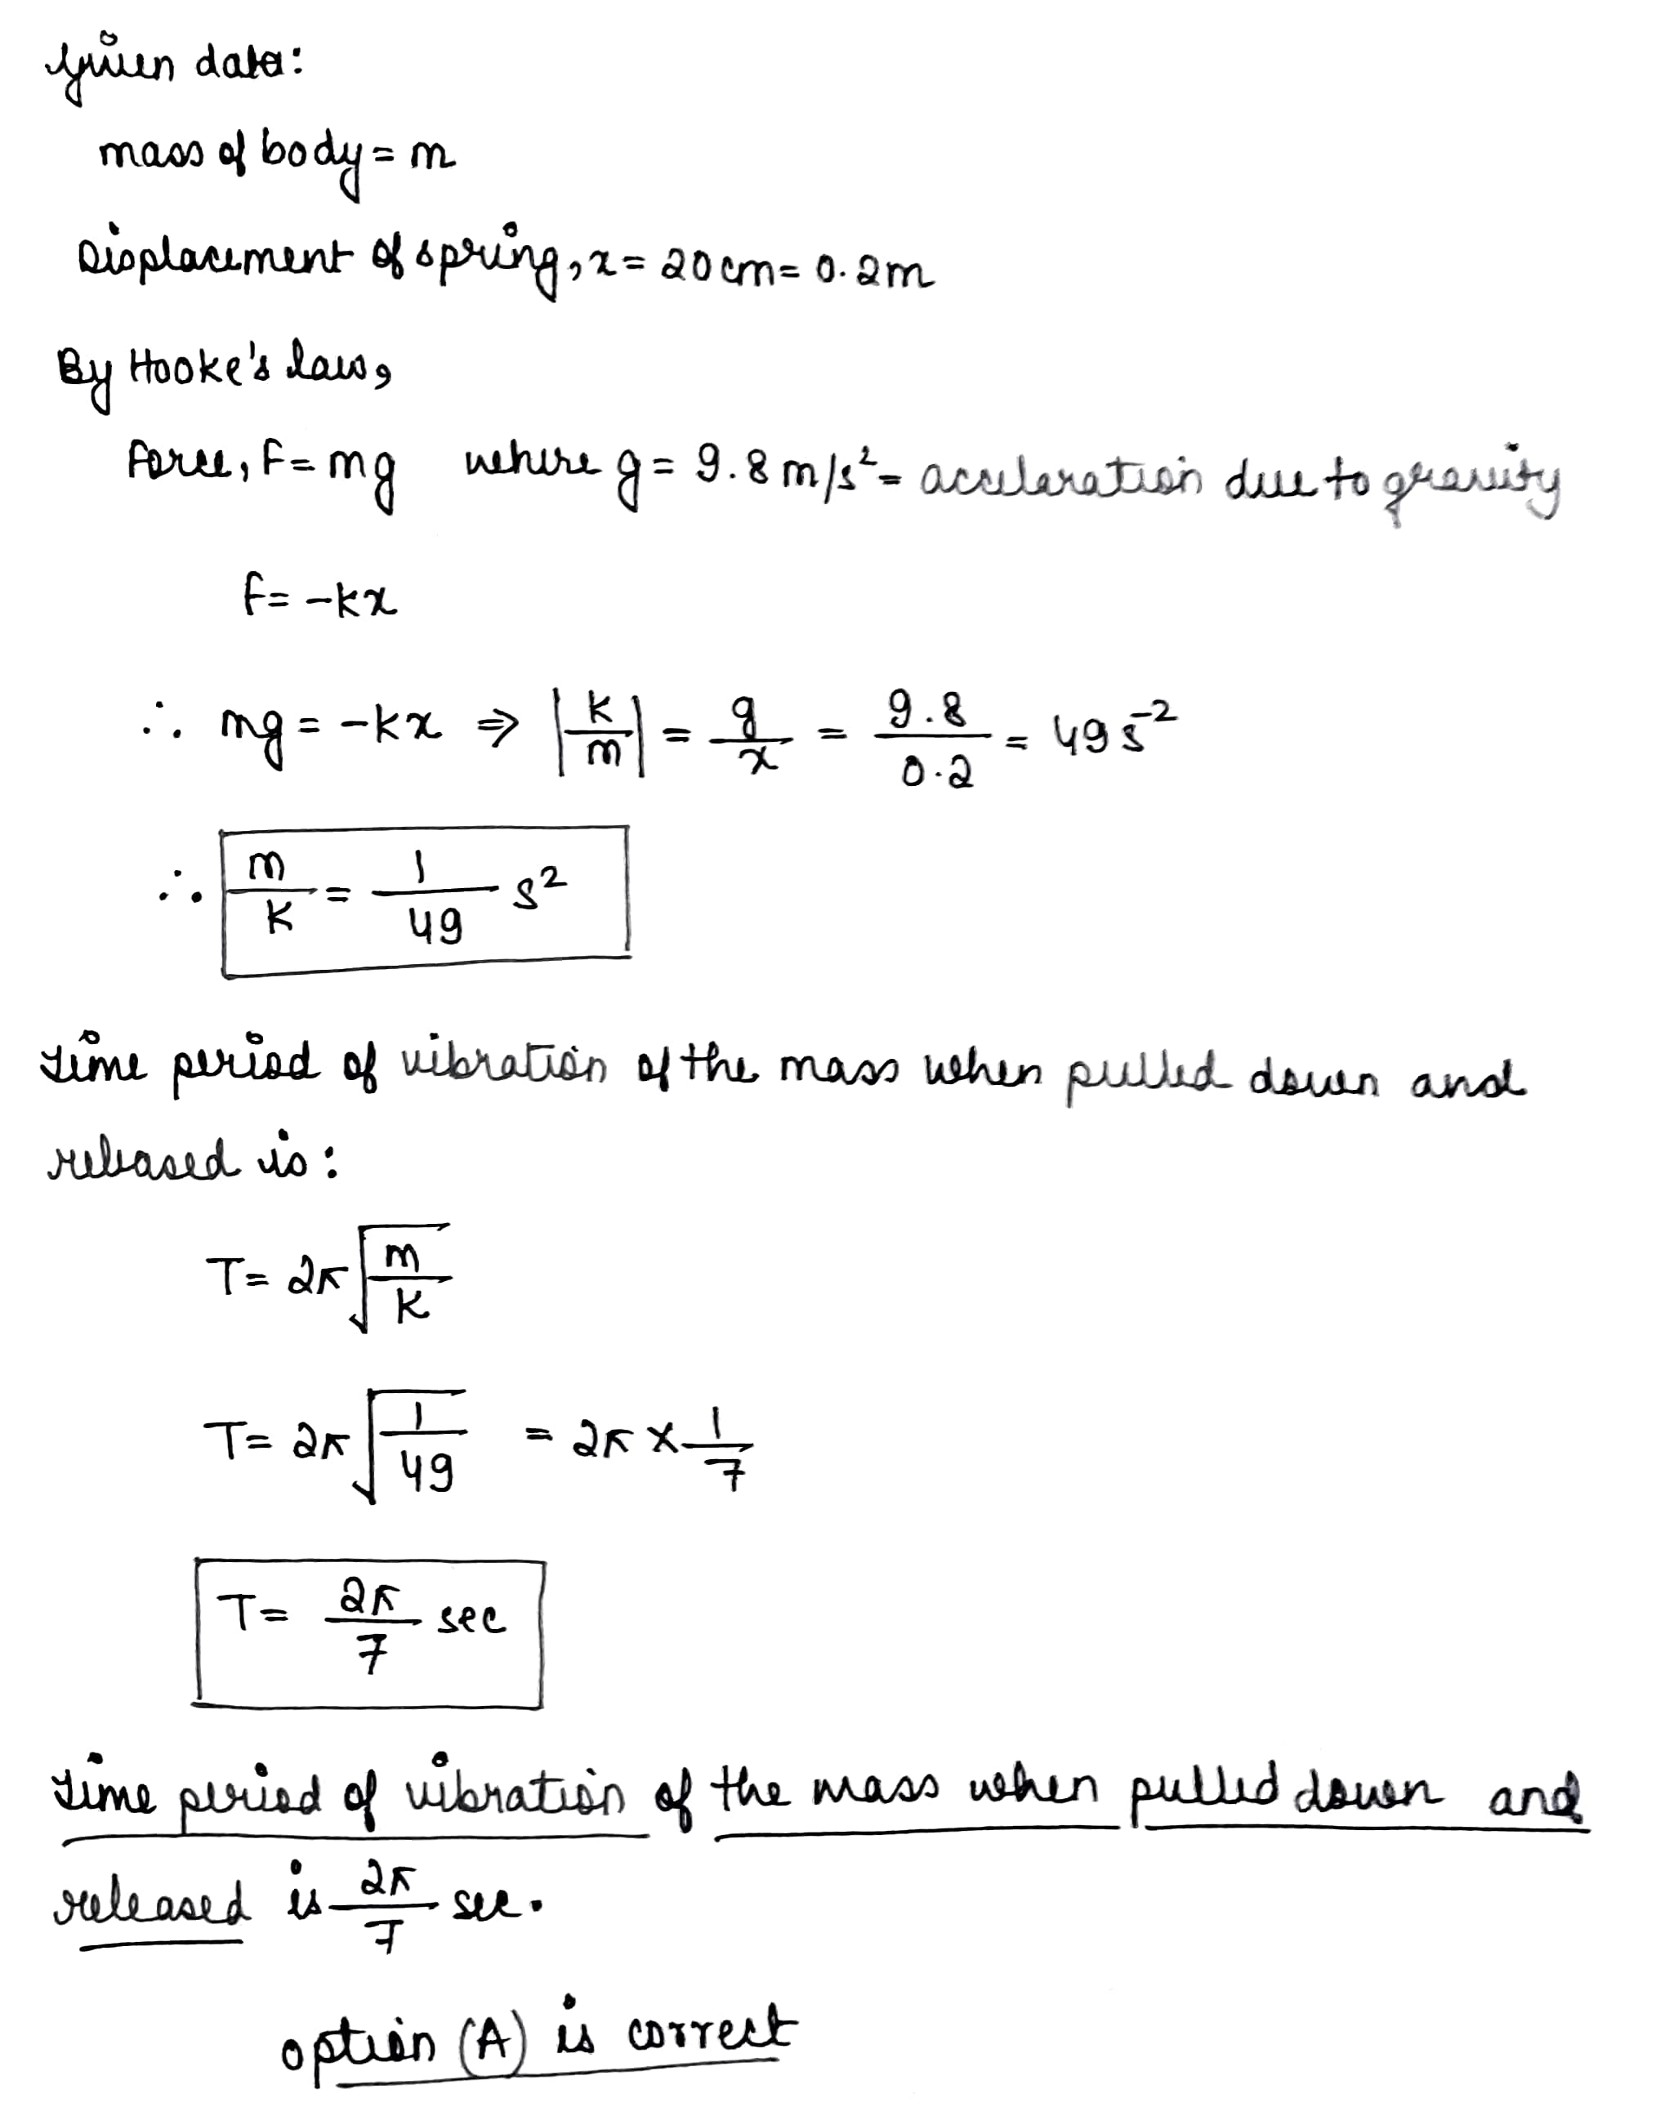 Given data:
mass of body = m
Displacement of spring, x = 20 cm = 0.2 m
By Hooke's law,
Force, F = mg where g = 9.8 m/s² = acceleration due to gravity
F = -kx
∴ mg = -kx ⇒ |k/m| = g/x = 9.8/0.2 = 49 s⁻²
∴ m/k = 1/49 s²
Time period of vibration of the mass when pulled down and
released is:
T = 2π√(m/k)
T = 2π√(1/49) = 2π × 1/7
T = 2π/7 sec
Time period of vibration of the mass when pulled down and
released is 2π/7 sec.
option (A) is correct